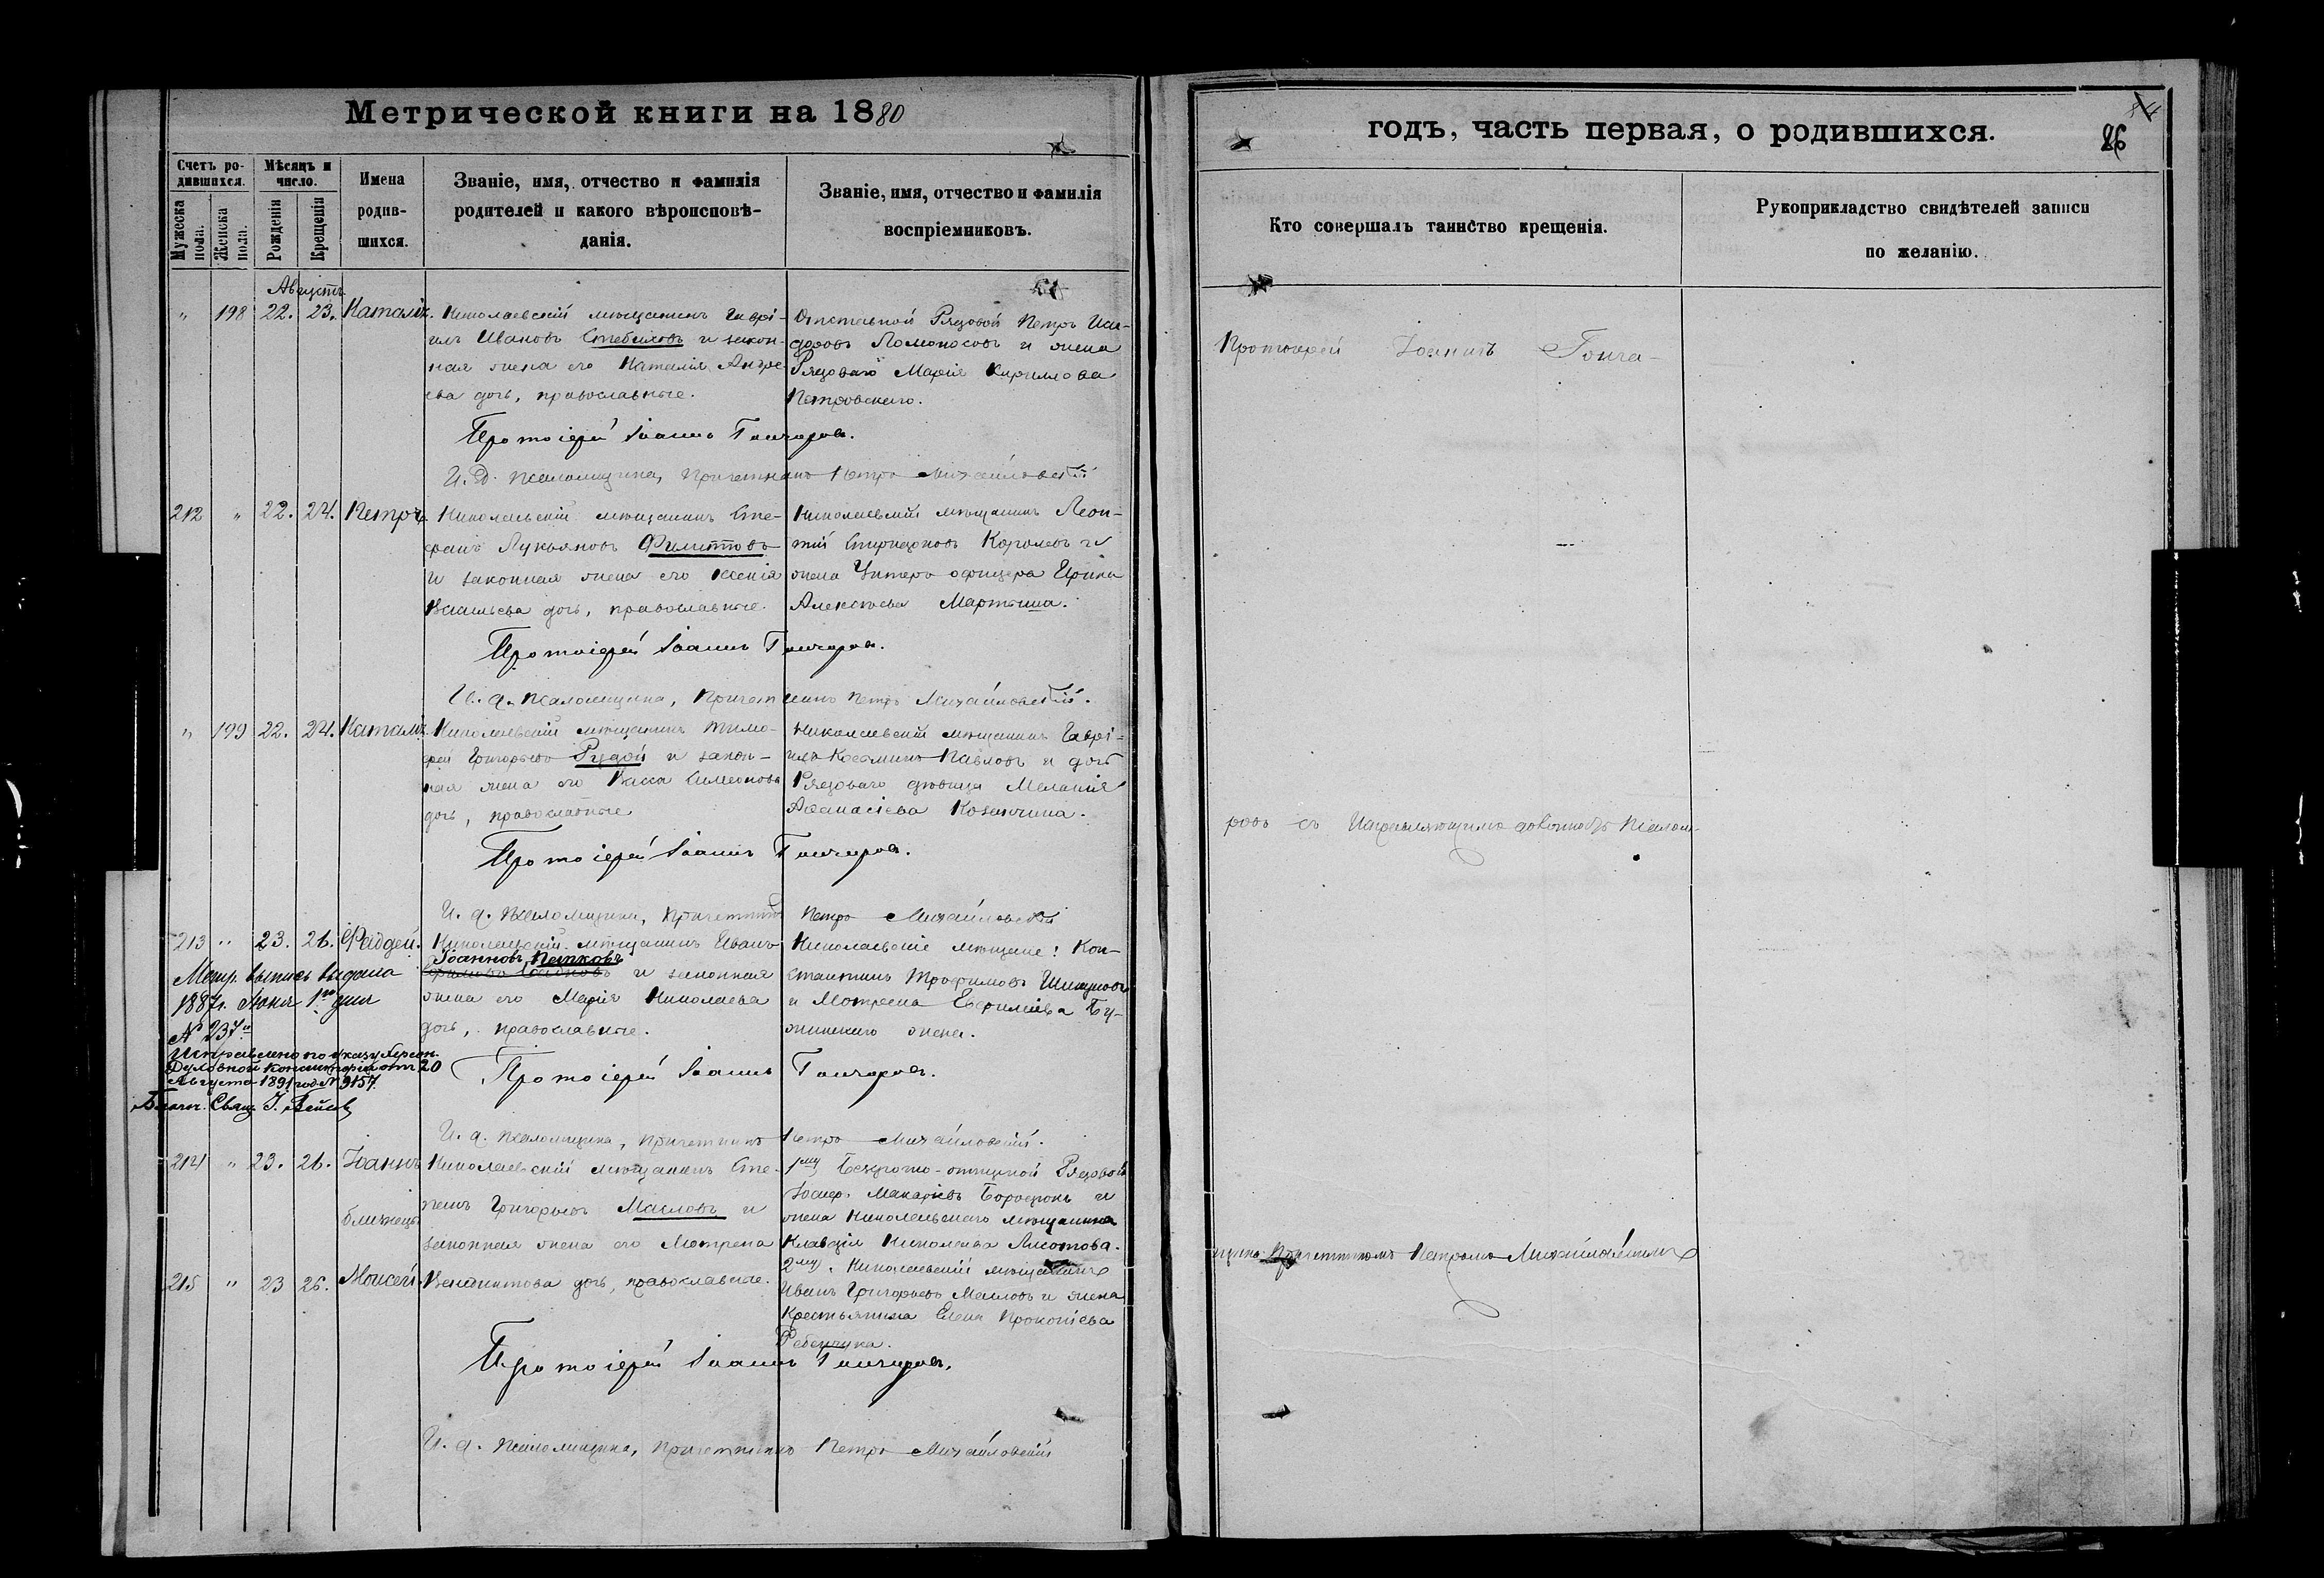 Метрической книги на 1880
годъ, часть первая, о родившихся.
86
Счетъ ро-
дившихся.
Мѣсяцъ и
число.
Имена
родив-
шихся.
Званіе, имя, отчество и фамилія
родителей и какого вѣроисповѣ-
данія.
Званіе, имя, отчество и фамилія
воспріемниковъ.
Мужеска
пола.
Женска
пола.
Рожденія
Крещенія
Кто совершалъ таинство крещенія.
Рукоприкладство свидѣтелей записи
по желанію.
Августъ
" 198 22. 23.
Николаевскій мѣщанинъ Гаврі-
илъ Ивановъ и закон-
ная жена его Наталія Андре-
ева дочь, православные.
Отставной Рядовой Петръ Иси-
доровъ Ломоносовъ и жена
Рядоваго Марія Кириллова
Петровскаго.
Протоіерей Іоаннъ Гончаровъ.
И. д. псаломщика, Причетникъ Петръ Михайловскій
212 " 22. 24. Петръ
Николаевскій мѣщанинъ Сте-
фанъ Лукьяновъ
и законная жена его Ксенія
Васильева дочь, православные.
Николаевскій мѣщанинъ Леон-
тій Спиридоновъ Королевъ и
жена Унтеръ офицера Ирина
Алексѣева
Протоіерей Іоаннъ Гончаровъ.
И. д. псаломщика, Причетникъ Петръ Михайловскій.
" 199 22. 24.
Николаевскій мѣщанинъ Тимо-
фей Григорьевъ Рудой и закон-
ная жена его Васса Симеонова
дочь, православные
Николаевскій мѣщанинъ Гаврі-
илъ Косьминъ Павловъ и дочь
Рядоваго дѣвица Меланія
Аѳанасіева
Протоіерей Іоаннъ Гончаровъ.
И. д. псаломщика, Причетникъ Петръ Михайловскій
213 " 23. 26. Фаддей.
Николаевскій мѣщанинъ Иванъ
Іоанновъ Пепковъ
и законная
жена его Марія Николаева
дочь, православные.
Николаевскіе мѣщане: Кон-
стантинъ Трофимовъ
и Мотрена Евфиміева Бу-
жинскаго жена.
Метр. выпись выдана
1887 г. Іюня 1го дня
№ 237
Исправлено по указу Херсон.
Духовной Консисторіи отъ 20
Августа 1891 год № 9157.
Свящ. І.
Протоіерей Іоаннъ Гончаровъ.
И. д. псаломщика, Причетникъ Петръ Михайловскій.
214 " 23. 26. Іоаннъ
близнецы
215 " 23 26. Моисей
Николаевскій мѣщанинъ Сте-
панъ Григорьевъ Масловъ и
законная жена его Мотрена
Венедиктова дочь, православные.
1му Безсрочно-отпускной Рядовой
Іосифъ Макаріевъ и
жена Николаевскаго мѣщанина
Клавдія Николаева
2му. Николаевскій мѣщанинъ
Иванъ Григорьевъ Масловъ и жена
Крестьянина Елена Прокопіева
Протоіерей Іоаннъ Гончаровъ.
И. д. псаломщика, Причетникъ Петръ Михайловскій
Протоіерей Іоаннъ Гонча-
ровъ съ Исправляющимъ должность псалом-
щика Причетникомъ Петромъ Михайловскимъ